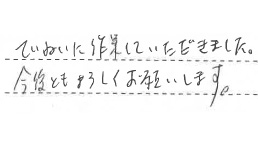 ていねいに作業していただきました。
今後ともよろしくお願いします。